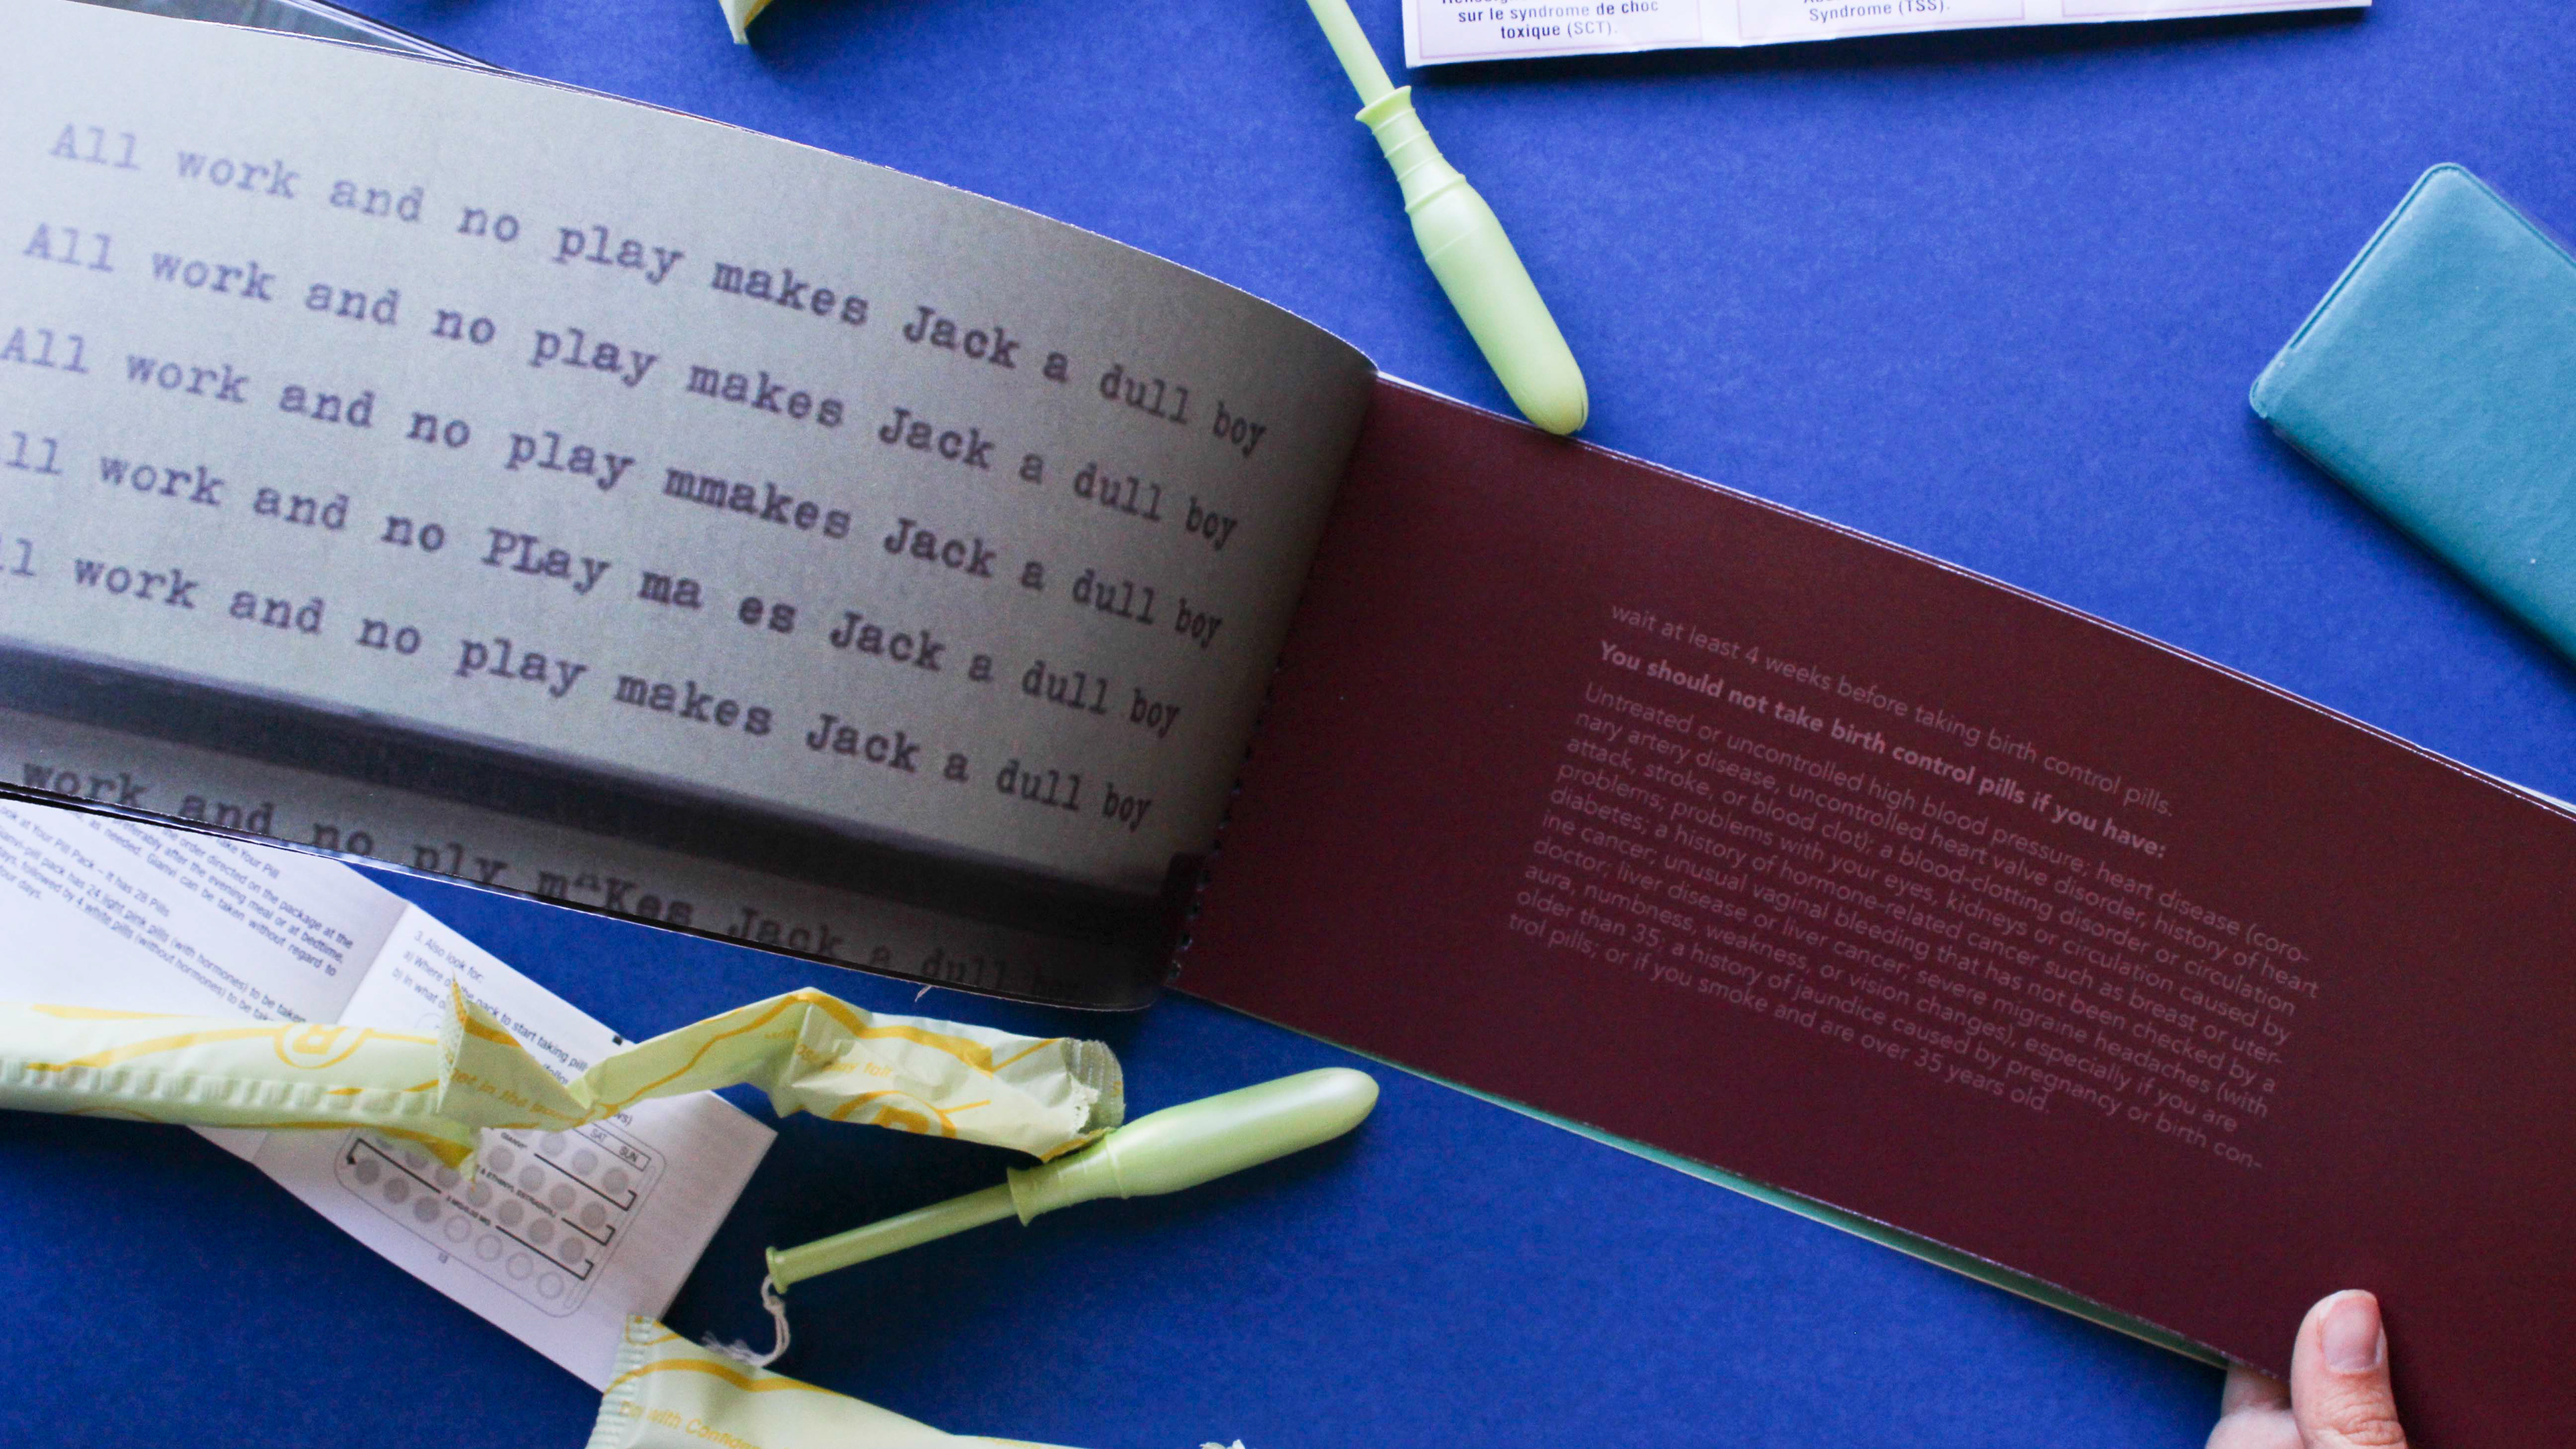 sur le syndrome de choc
toxique (SCT).
Syndrome (TSS).
All work and no play makes Jack a dull boy
All work and no play makes Jack a dull boy
All work and no play mmakes Jack a dull boy
ll work and no PLay ma es Jack a dull boy
ll work and no play makes Jack a dull boy
work and no ply m^Kes Jack a dull
wait at least 4 weeks before taking birth control pills.
You should not take birth control pills if you have:
Untreated or uncontrolled high blood pressure; heart disease (coro-
nary artery disease, uncontrolled heart valve disorder, history of heart
attack, stroke, or blood clot); a blood-clotting disorder or circulation
problems; problems with your eyes, kidneys or circulation caused by
diabetes; a history of hormone-related cancer such as breast or uter-
ine cancer; unusual vaginal bleeding that has not been checked by a
doctor; liver disease or liver cancer; severe migraine headaches (with
aura, numbness, weakness, or vision changes), especially if you are
older than 35; a history of jaundice caused by pregnancy or birth con-
trol pills; or if you smoke and are over 35 years old.
Take Your Pill
the order directed on the package at the
preferably after the evening meal or at bedtime,
as needed. Gianvi can be taken without regard to
ook at Your Pill Pack – It has 28 Pills
Gianvi-pill pack has 24 light pink pills (with hormones) to be taken
days, followed by 4 white pills (without hormones) to be
four days.
3. Also look for:
a) Where on the pack to start taking pill
b) In what o
SAT
SUN
13
get in the
with Confiden